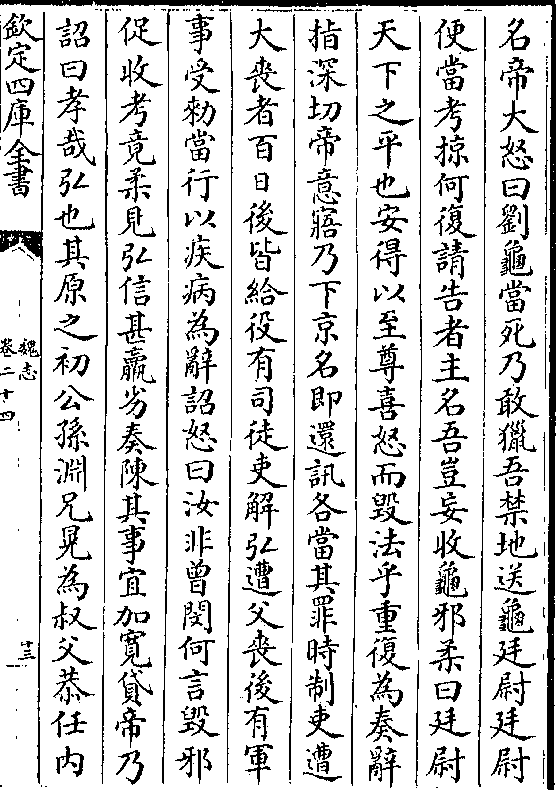 名帝大怒曰劉龜當死乃敢獵吾禁地送龜廷尉廷尉
便當考掠何復請告者主名吾豈妄收龜邪柔曰廷尉
天下之平也安得以至尊喜怒而毀法乎重復為奏辭
指深切帝意寤乃下京名即還訊各當其罪時制吏遭
大喪者百日後皆給役有司徒吏解弘遭父喪後有軍
事受勑當行以疾病為辭詔怒曰汝非曾閔何言毀邪
促收考竟柔見弘信甚羸劣奏陳其事宜加寬貸帝乃
詔曰孝哉弘也其原之初公孫淵兄晃為叔父恭任内
欽定四庫全書
魏志
卷二十四
十三